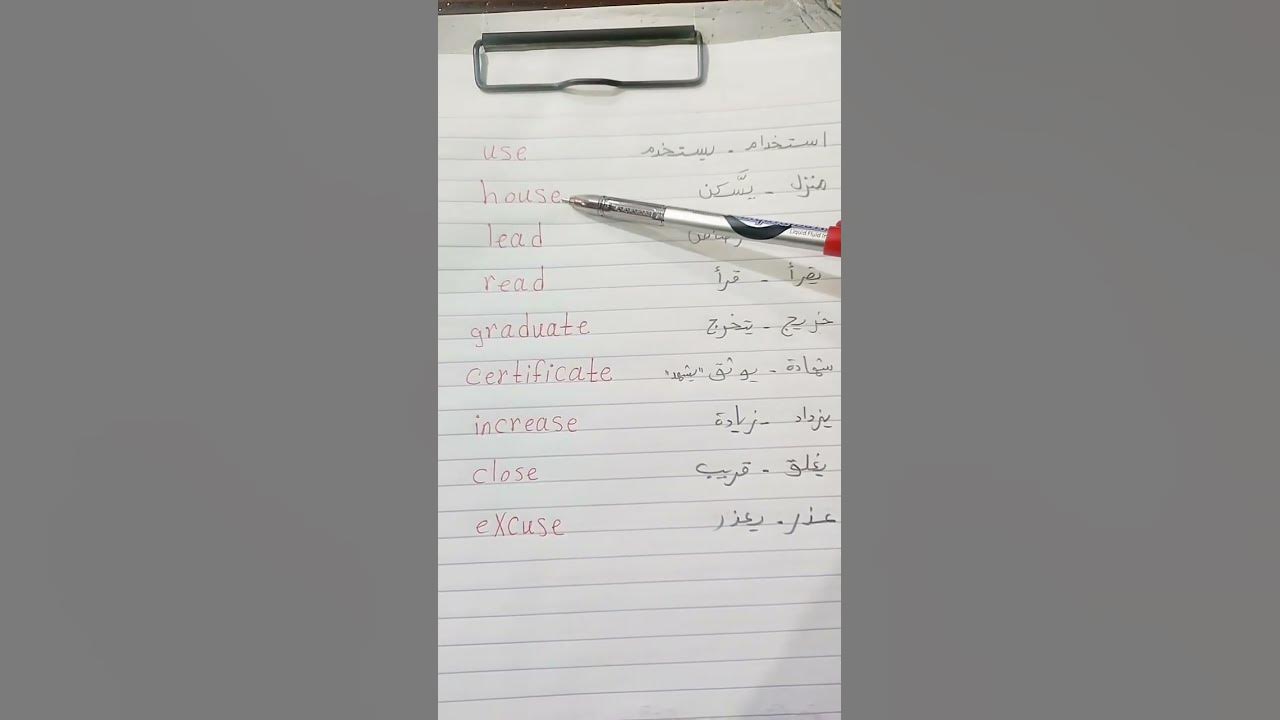 use استخدام - يستخدم
house منزل - يسَّكن
lead
read يقرأ - قرأ
graduate خريج - يتخرج
certificate شهادة - يوثق "يشهد"
increase يزداد - زيادة
close يغلق - قريب
excuse عذر - يعذر